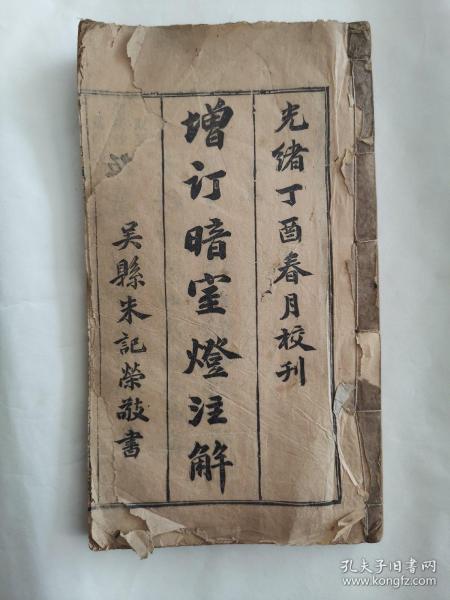 光緒丁酉春月校刊
增订暗室燈注解
吴縣朱記榮敬書
孔夫子旧书网
www.kongfz.com